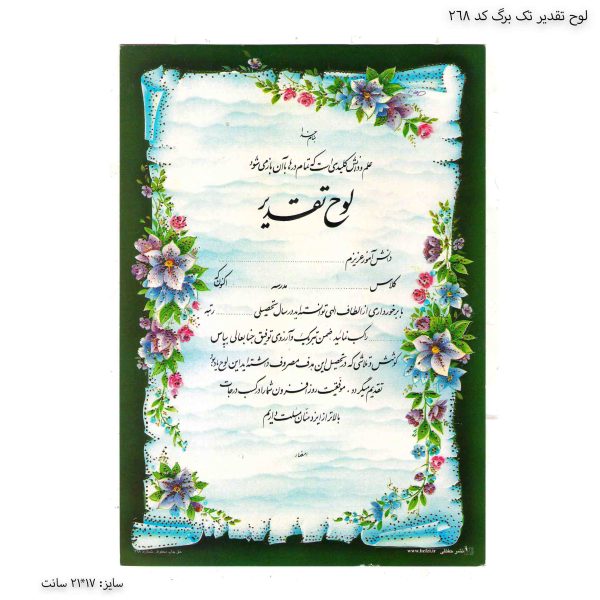 لوح تقدیر تک برگ کد ۲٦۸
بنام خدا
علم و دانش کلیدی است که تمام درها با آن باز می شود
لوح تقدیر
دانش آموز عزیزم
کلاس مدرسه
با برخورداری از الطاف الهی توانسته اید در سال تحصیلی رتبه
را کسب نمائید، ضمن تبریک و آرزوی توفیق جنابعالی بپاس
کوشش و تلاشی که در تحصیل این هدف مصروف داشته اید این لوح یادبود
تقدیم میگردد. موفقیت روز افزون شما را در کسب درجات
بالاتر از ایزد منان مسئلت داریم
امضاء
نشر حافظی www.hefzi.ir
سایز: ۱۷*۲۱ سانت